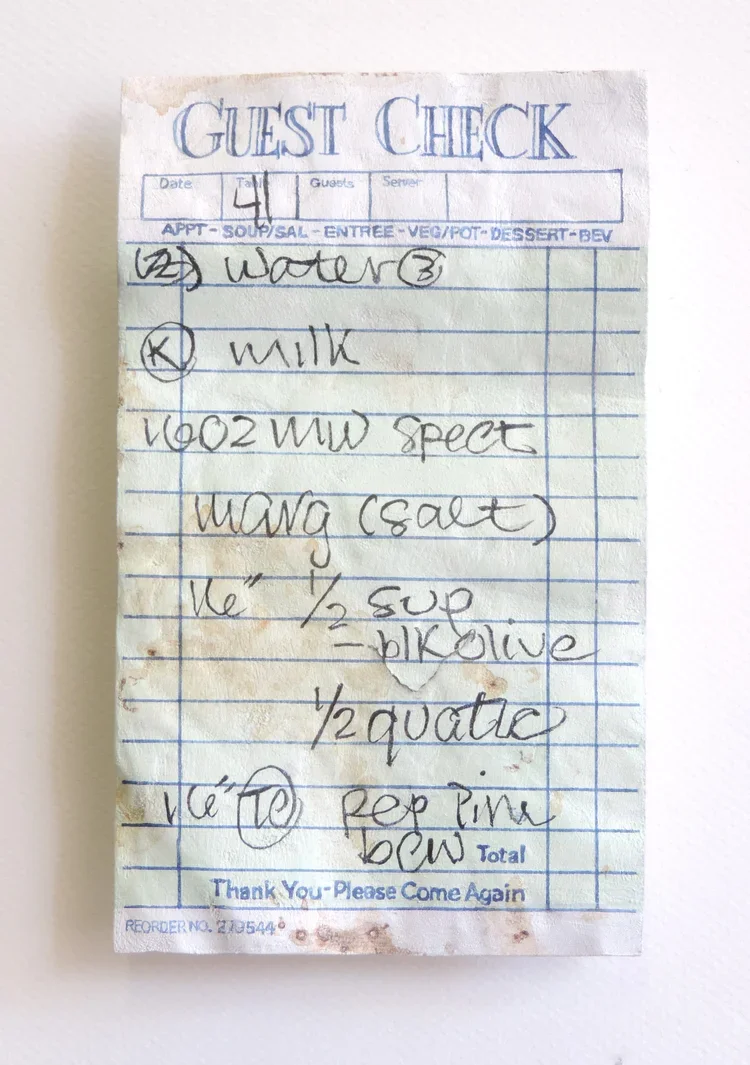 GUEST CHECK
Date Table Guests Server
41
APPT - SOUP/SAL - ENTREE - VEG/POT - DESSERT - BEV
water 3
K milk
16oz MW spect
marg (salt)
16" 1/2 sup
- blk olive
1/2 quatle
16" TC pep pine
bcw Total
Thank You - Please Come Again
REORDER NO. 279544